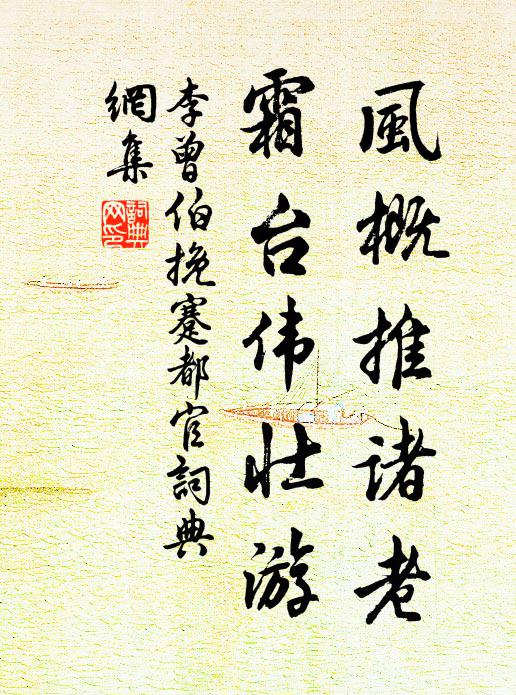 風概推诸老
霜台伟壮游
李曾伯挽蹇都官詞典
網集
詞典
网印